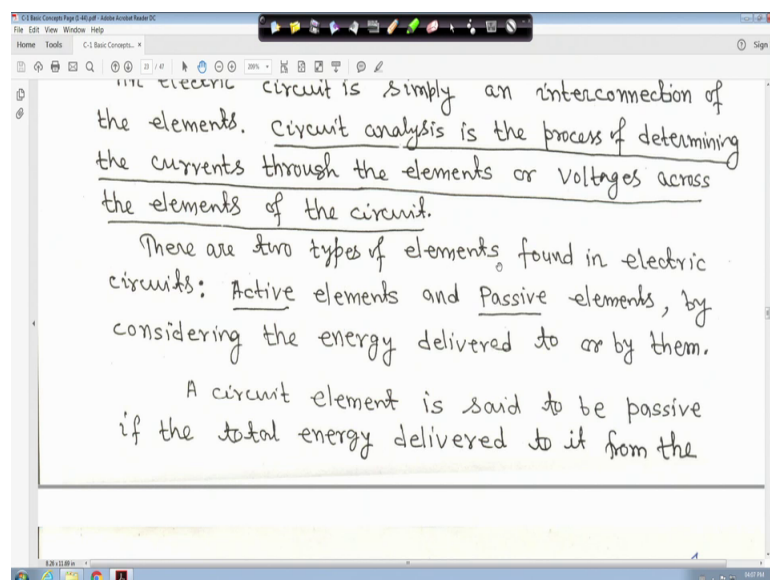 C-1 Basic Concepts Page (1-44).pdf - Adobe Acrobat Reader DC
File Edit View Window Help
Home Tools C-1 Basic Concepts... × Sign
23 / 47 200%
electric circuit is simply an interconnection of
the elements. Circuit analysis is the process of determining
the currents through the elements or voltages across
the elements of the circuit.
There are two types of elements found in electric
circuits: Active elements and Passive elements, by
considering the energy delivered to or by them.
A circuit element is said to be passive
if the total energy delivered to it from the
8.26 x 11.69 in